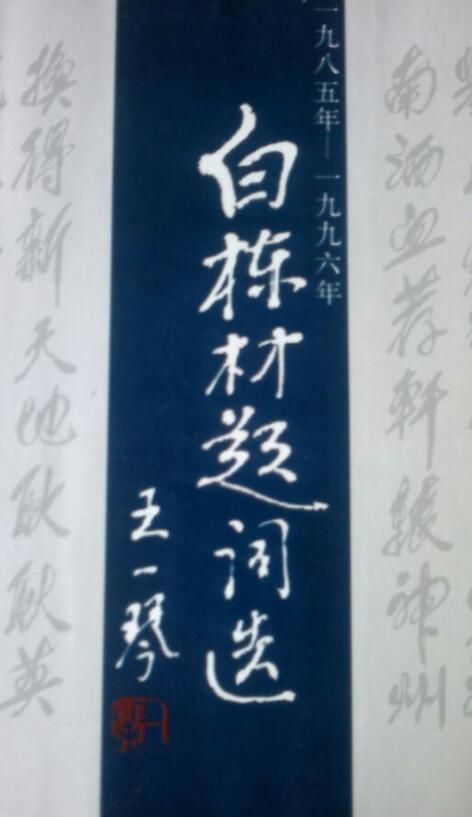 南洒血荐轩辕神州
一九八五年—一九九六年
白栋材题词选
王一琴
换得新天地耿耿英